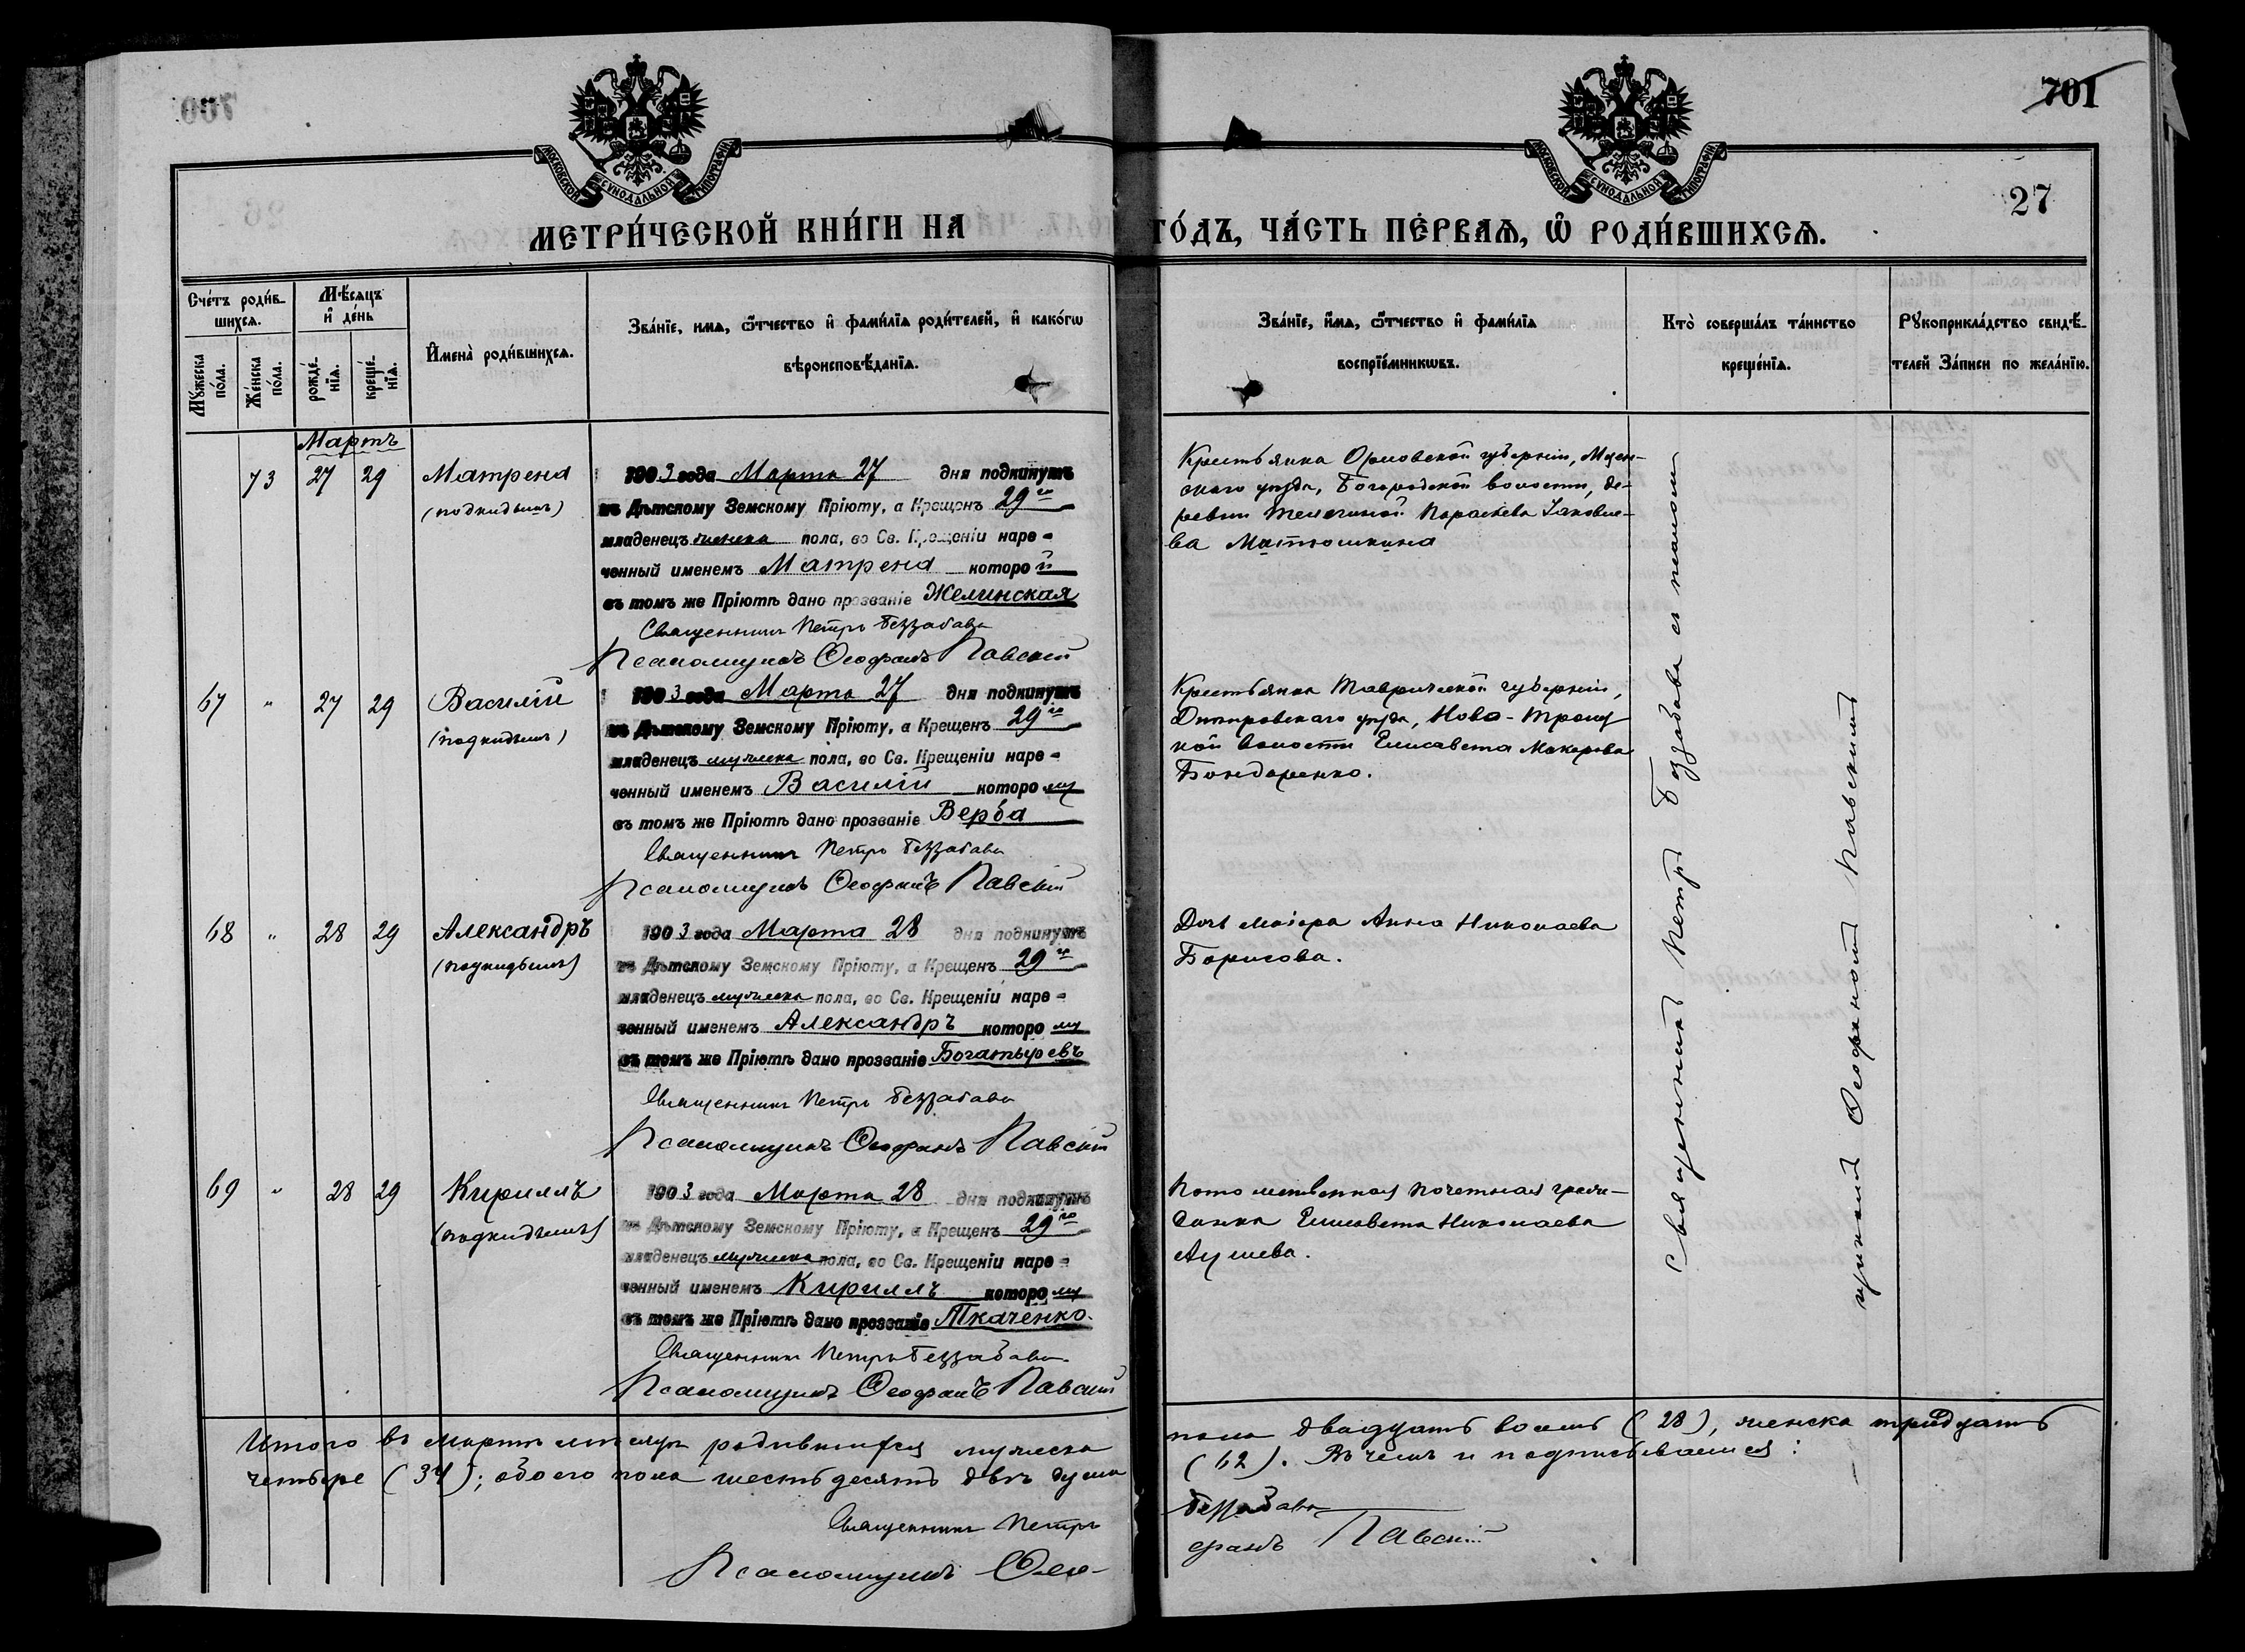 701
27
МОСКОВСКОЙ СѴНОДАЛЬНОЙ ТИПОГРАФІИ
МОСКОВСКОЙ СѴНОДАЛЬНОЙ ТИПОГРАФІИ
МЕТРИ́ЧЕСКОЙ КНИ́ГИ НА ГО́ДЪ, ЧА́СТЬ ПЕ́РВАЯ, Ѡ҆ РОДИ́ВШИХСЯ.
Сче́тъ роди́в-
шихся.
Мѣ́сяцъ
и҆ де́нь
Мꙋ́жеска по́ла.
Же́нска по́ла.
рожде́-
нїя.
креще́-
нїя.
И҆мена̀ роди́вшихся.
Зва́нїе, и҆́мя, ѻ҆́тчество и҆ фами́лїя роди́телей, и҆ како́гѡ
вѣроисповѣ́данїя.
Зва́нїе, и҆́мя, ѻ҆́тчество и҆ фами́лїя
воспрїе́мникѡвъ.
Кто̀ соверша́лъ та́инство
креще́нїя.
Рꙋкоприкла́дство свидѣ́-
телей За́писи по жела́нїю.
Мартъ
73 27 29 Матрена
(подкидышъ)
1903 года Марта 27 дня подкинутъ
въ Дѣтскому Земскому Пріюту, а Крещенъ 29го
младенецъ женска пола, во Св. Крещеніи наре-
ченный именемъ Матрена которой
въ томъ же Пріютѣ дано прозваніе Желинская
Священникъ Петръ Беззабава
Псаломщикъ Ѳеофанъ Павскій
Крестьянка Орловской губерніи, Мцен-
скаго уѣзда, Богородской волости, де-
ревни Телегиной Параскева Іаковле-
ва Матюшкина
67 " 27 29 Василій
(подкидышъ)
1903 года Марта 27 дня подкинутъ
въ Дѣтскому Земскому Пріюту, а Крещенъ 29го
младенецъ мужеска пола, во Св. Крещеніи наре-
ченный именемъ Василій которому
въ томъ же Пріютѣ дано прозваніе Верба
Священникъ Петръ Беззабава
Псаломщикъ Ѳеофанъ Павскій
Крестьянка Таврической губерніи,
Днѣпровскаго уѣзда, Ново-Троиц
кой волости Елисавета Макарова
Бондаренко.
68 " 28 29 Александръ
(подкидышъ)
1903 года Марта 28 дня подкинутъ
въ Дѣтскому Земскому Пріюту, а Крещенъ 29го
младенецъ мужеска пола, во Св. Крещеніи наре-
ченный именемъ Александръ которому
въ томъ же Пріютѣ дано прозваніе Богатыревъ
Священникъ Петръ Беззабава
Псаломщикъ Ѳеофанъ Павскій
Дочь маіора Анна Николаева
Борисова.
69 " 28 29 Кириллъ
(подкидышъ)
1903 года Марта 28 дня подкинутъ
въ Дѣтскому Земскому Пріюту, а Крещенъ 29го
младенецъ мужеска пола, во Св. Крещеніи наре-
ченный именемъ Кириллъ которому
въ томъ же Пріютѣ дано прозваніе Ткаченко.
Священникъ Петръ Беззабава
Псаломщикъ Ѳеофанъ Павскій
Потомственная почетная граж-
данка Елисавета Николаева
Священникъ Петръ Беззабава съ псалом
щикомъ Ѳеофаномъ Павскимъ
Итого въ мартѣ мѣсяцѣ родившихся мужеска пола двадцать восемь (28), женска тридцать
четыре (34); обоего пола шестьдесятъ двѣ души (62). Въ чемъ и подписываемся:
Священникъ Петръ Беззабава
Псаломщикъ Ѳео-фанъ Павскій